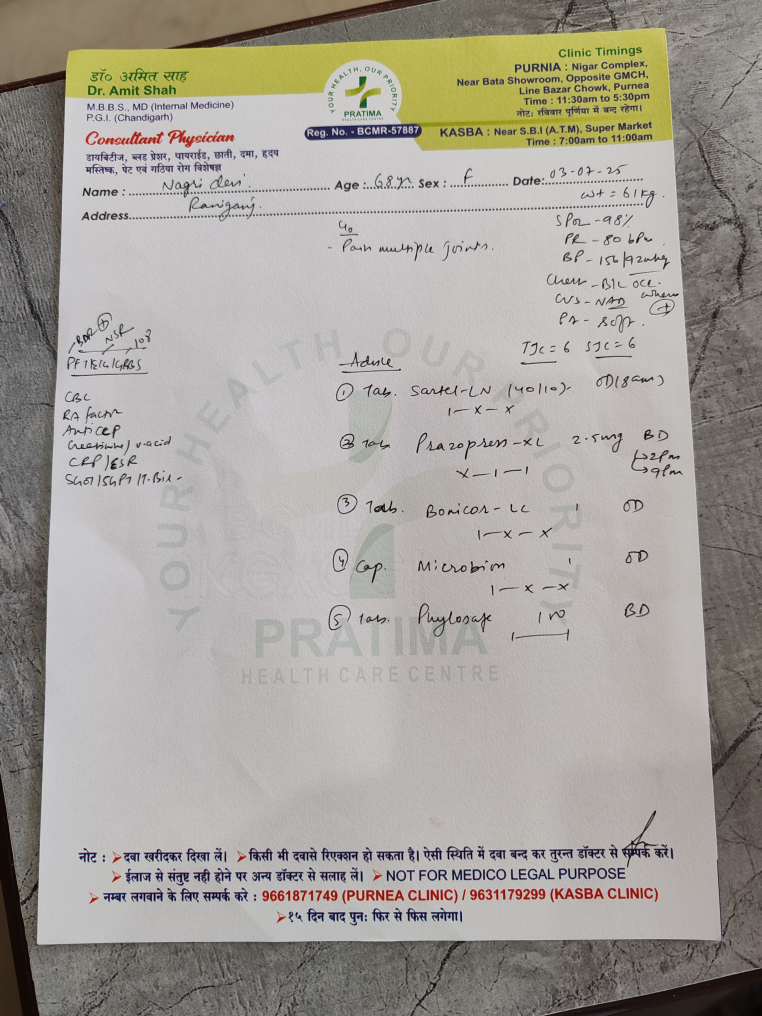 डॉ० अमित साह
Dr. Amit Shah
M.B.B.S., MD (Internal Medicine)
P.G.I. (Chandigarh)
Consultant Physician
डायबिटीज, ब्लड प्रेशर, थायराईड, छाती, दमा, हृदय
मस्तिष्क, पेट एवं गठिया रोग विशेषज्ञ
YOUR HEALTH, OUR PRIORITY
PRATIMA
HEALTH CARE CENTRE
Reg. No. - BCMR-57887
Clinic Timings
PURNIA : Nigar Complex,
Near Bata Showroom, Opposite GMCH,
Line Bazar Chowk, Purnea
Time : 11:30am to 5:30pm
नोट: रविवार पूर्णिया में बन्द रहेगा।
KASBA : Near S.B.I (A.T.M), Super Market
Time : 7:00am to 11:00am
Name : Nagri devi Age : 68 yr Sex : F Date: 03-07-25
Address Raniganj
wt = 61 kg.
c/o
- Pain multiple joints.
SPO2 - 98%
PR - 80 bpm
BP - 156/92 mmHg
Chest - B/L occ. wheeze +
CVS - NAD
PA - Soft.
TJC = 6 SJC = 6
NSR 108
PFT/ECG/GRBS
CBC
RA factor
Anti CCP
Creatinine / u-acid
CRP/ESR
SGOT/SGPT/T.Bil-
Advice
1 Tab. Sartel-LN (40/10) OD (8am)
1-x-x
2 Tab Prazopress-XL 2.5mg BD
2pm
9pm
x-1-1
3 Tab. Bonicor-LC 1 OD
1-x-x
4 Cap. Microbion 1 OD
1-x-x
5 Tab. Phylosafe BD
YOUR HEALTH OUR PRIORITY
PRATIMA
HEALTH CARE CENTRE
नोट : ➤दवा खरीदकर दिखा लें। ➤किसी भी दवासे रिएक्शन हो सकता है। ऐसी स्थिति में दवा बन्द कर तुरन्त डॉक्टर से सम्पर्क करें।
➤ईलाज से संतुष्ट नही होने पर अन्य डॉक्टर से सलाह लें। ➤ NOT FOR MEDICO LEGAL PURPOSE
➤ नम्बर लगवाने के लिए सम्पर्क करे : 9661871749 (PURNEA CLINIC) / 9631179299 (KASBA CLINIC)
➤१५ दिन बाद पुनः फिर से फिस लगेगा।